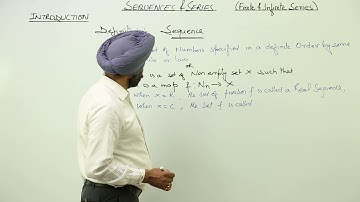 SEQUENCES & SERIES (Finite & Infinite Series)
INTRODUCTION
Sequence
set of Numbers specified in a definite Order by some
rule or law
or
is a set of Non empty set X such that
a map f: Nn → X
when x = R, the set of function f is called a Real Sequence,
when x = C, the set f is called